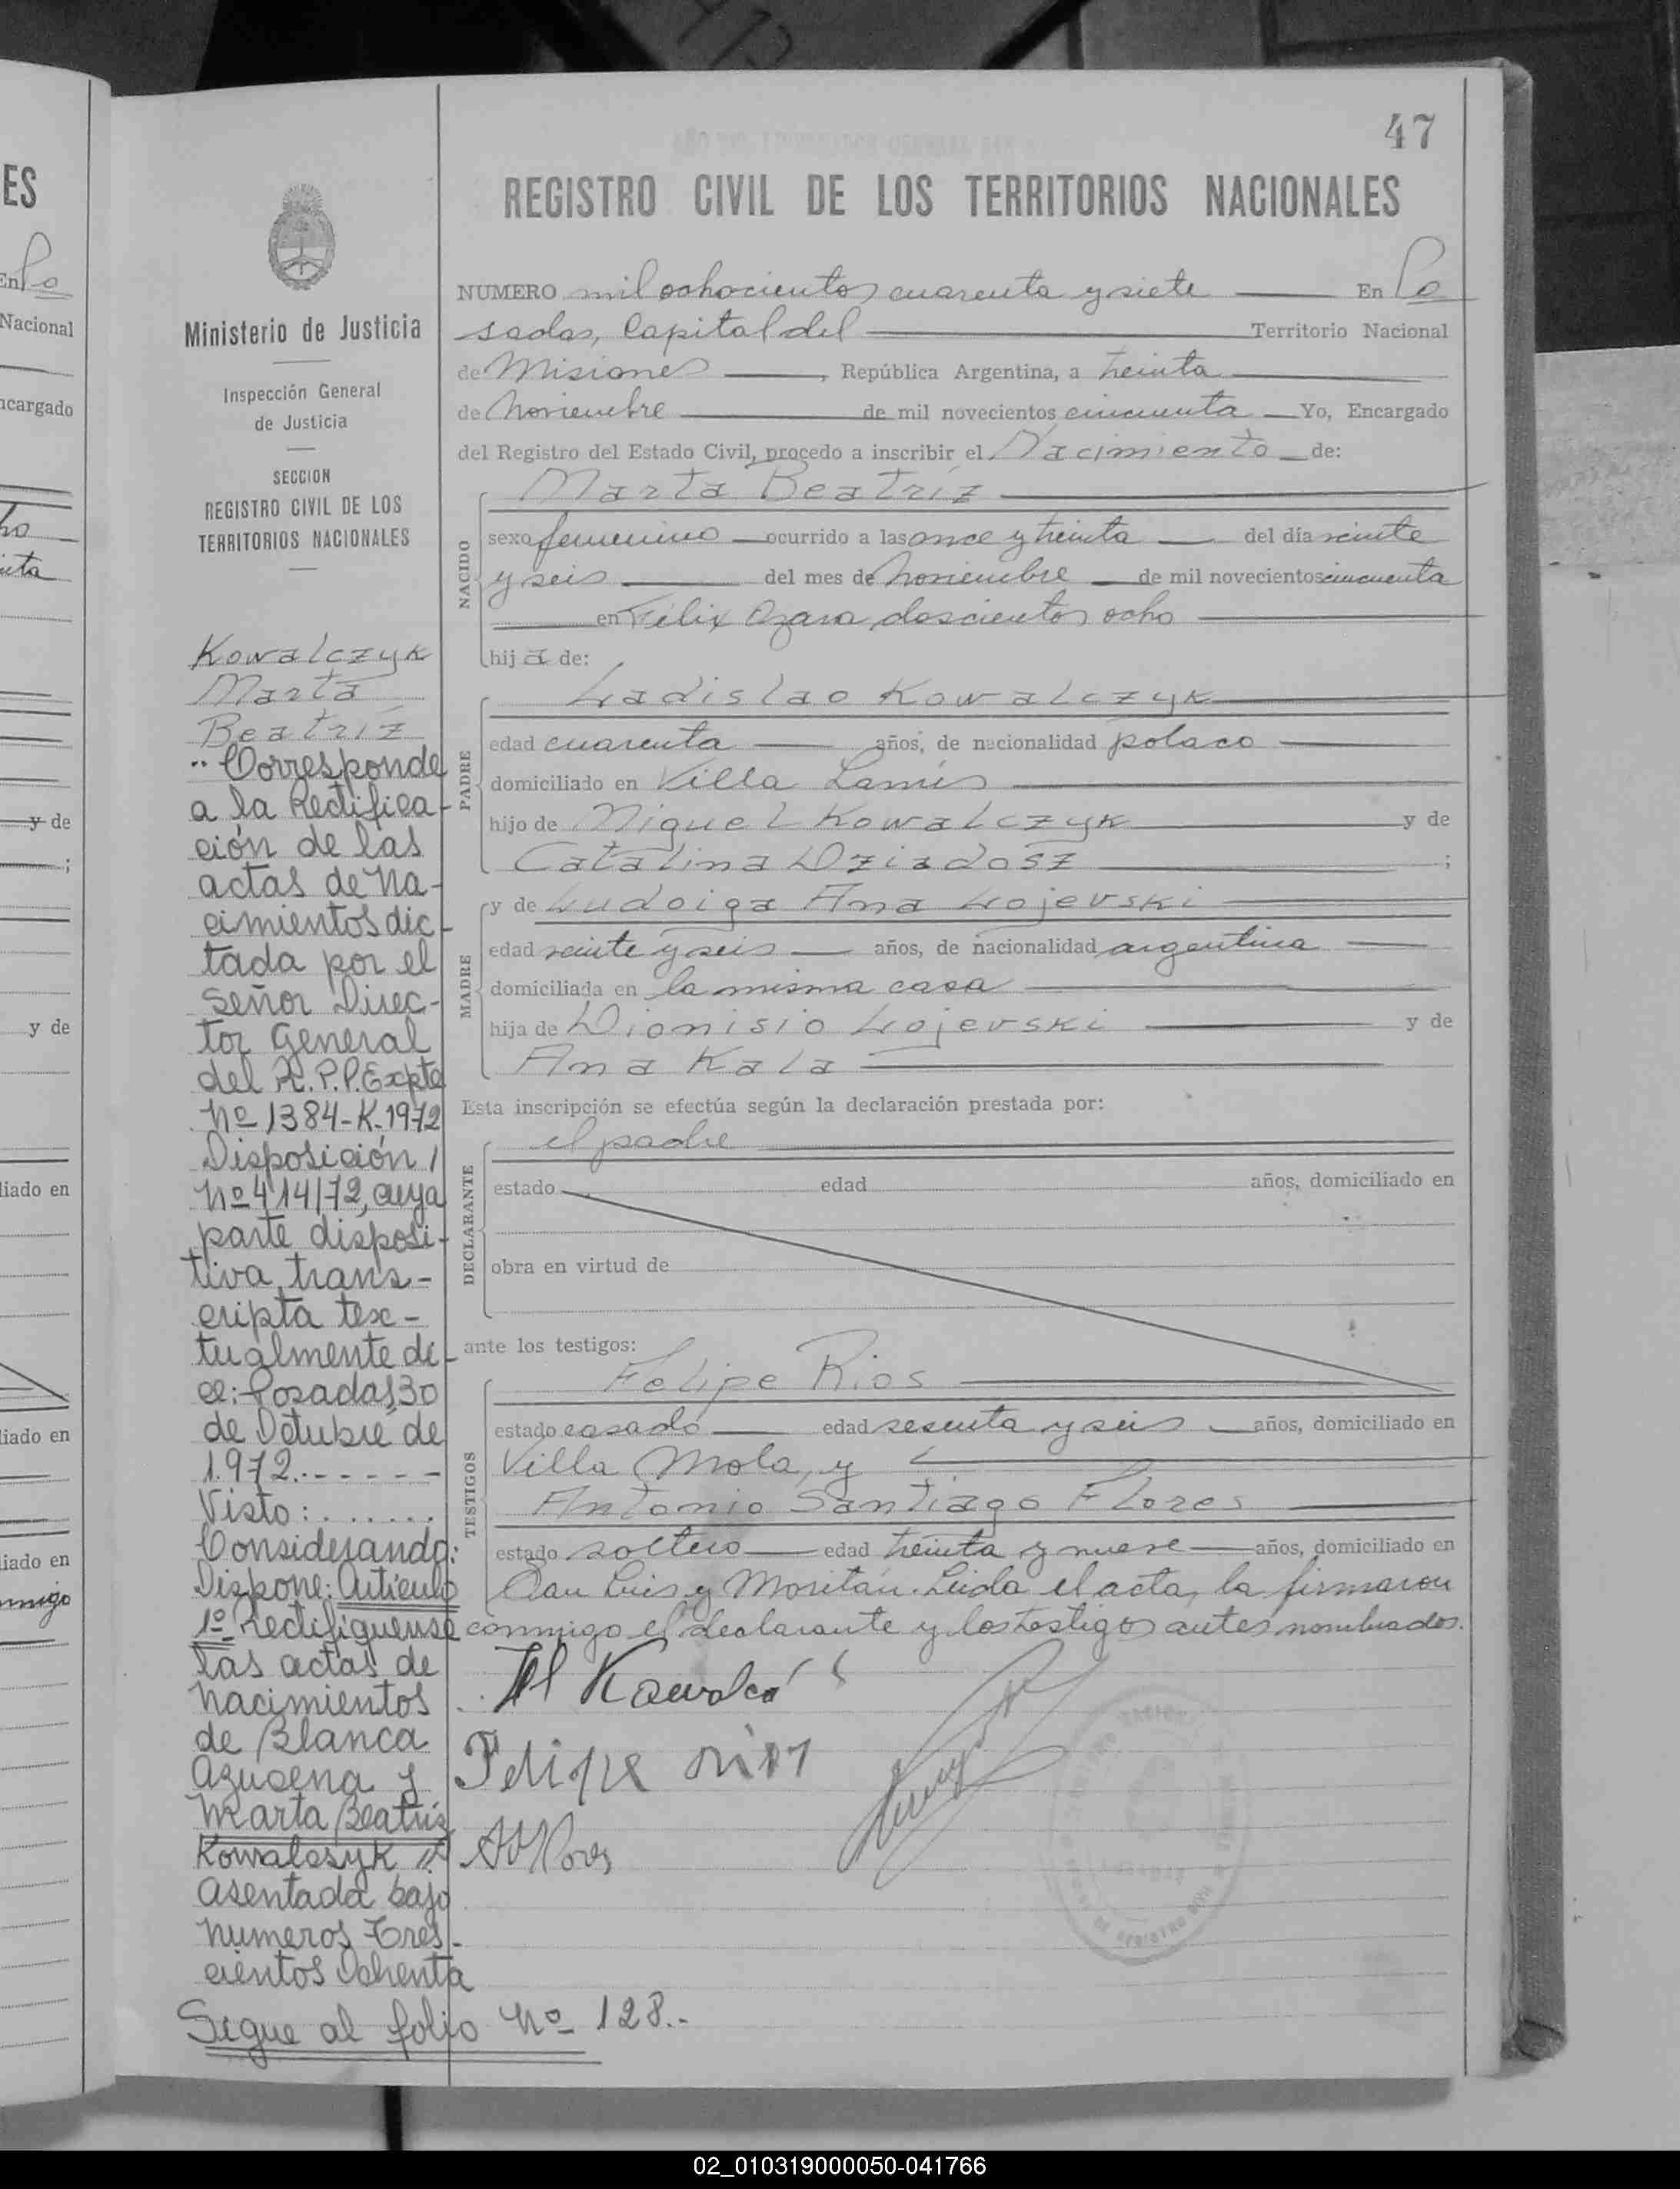 47
REGISTRO CIVIL DE LOS TERRITORIOS NACIONALES
NUMERO mil ochocientos cuarenta y siete En Po
sadas, Capital del Territorio Nacional
de Misiones, República Argentina, a treinta
de Noviembre de mil novecientos cincuenta Yo, Encargado
del Registro del Estado Civil, procedo a inscribir el Nacimiento de:
NACIDO
Marta Beatríz
sexo femenino ocurrido a las once y treinta del día veinte
y seis del mes de Noviembre de mil novecientos cincuenta
en Félix Azara doscientos ocho
hija de:
PADRE
Ladislao Kowalczyk
edad cuarenta años, de nacionalidad polaco
domiciliado en Villa Lamús
hijo de Miguel Kowalczyk y de
Catalina Dziadosz ;
MADRE
y de Ludoiga Ana Lojevski
edad veinte y seis años, de nacionalidad argentina
domiciliada en la misma casa
hija de Dionisio Lojevski y de
Ana Kala
Esta inscripción se efectúa según la declaración prestada por:
DECLARANTE
el padre
estado edad años, domiciliado en
obra en virtud de
ante los testigos:
TESTIGOS
Felipe Rios
estado casado edad sesenta y seis años, domiciliado en
Villa Mola, y
Antonio Santiago Flores
estado soltero edad treinta y nueve años, domiciliado en
San Luis y Moritán. Leída el acta, la firmaron
conmigo el declarante y los testigos antes nombrados.
Felipe rios
Ministerio de Justicia
Inspección General
de Justicia
SECCION
REGISTRO CIVIL DE LOS
TERRITORIOS NACIONALES
Kowalczyk
Marta
Beatríz
"Corresponde
a la Rectifica-
ción de las
actas de Na-
cimientos dic-
tada por el
Señor Direc-
tor General
del R.P.P. Expte
Nº 1384-K-1972
Disposición
Nº 414/72, cuya
parte disposi-
tiva trans-
cripta tex-
tualmente di-
ce: Posadas, 30
de Octubre de
1.972.-----
Visto:.......
Considerando:
Dispone: Artículo
1º- Rectifíquense
las actas de
Nacimientos
de Blanca
Azucena y
Marta Beatriz
Kowalczyk
asentada bajo
Números Tres-
cientos Ochenta
Sigue al folio Nº 128.-
ES
En Po
Nacional
ncargado
y de
;
y de
liado en
liado en
liado en
nmigo
02_010319000050-041766